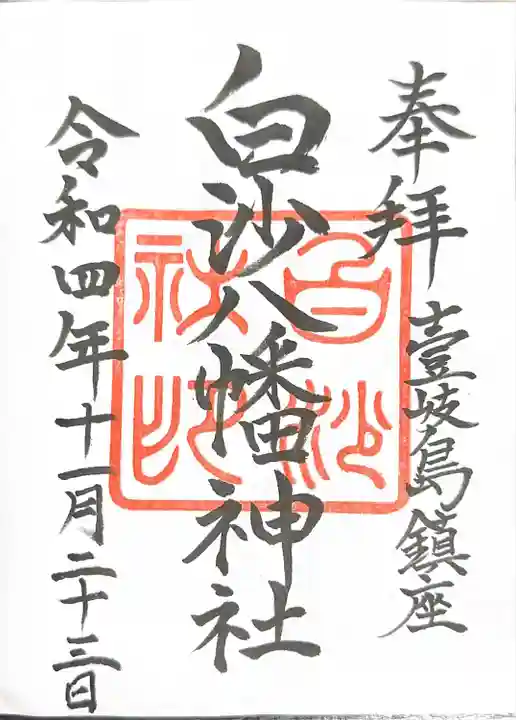 奉拝 壹岐島鎮座
白沙八幡神社
令和四年十一月二十三日
白沙
社印